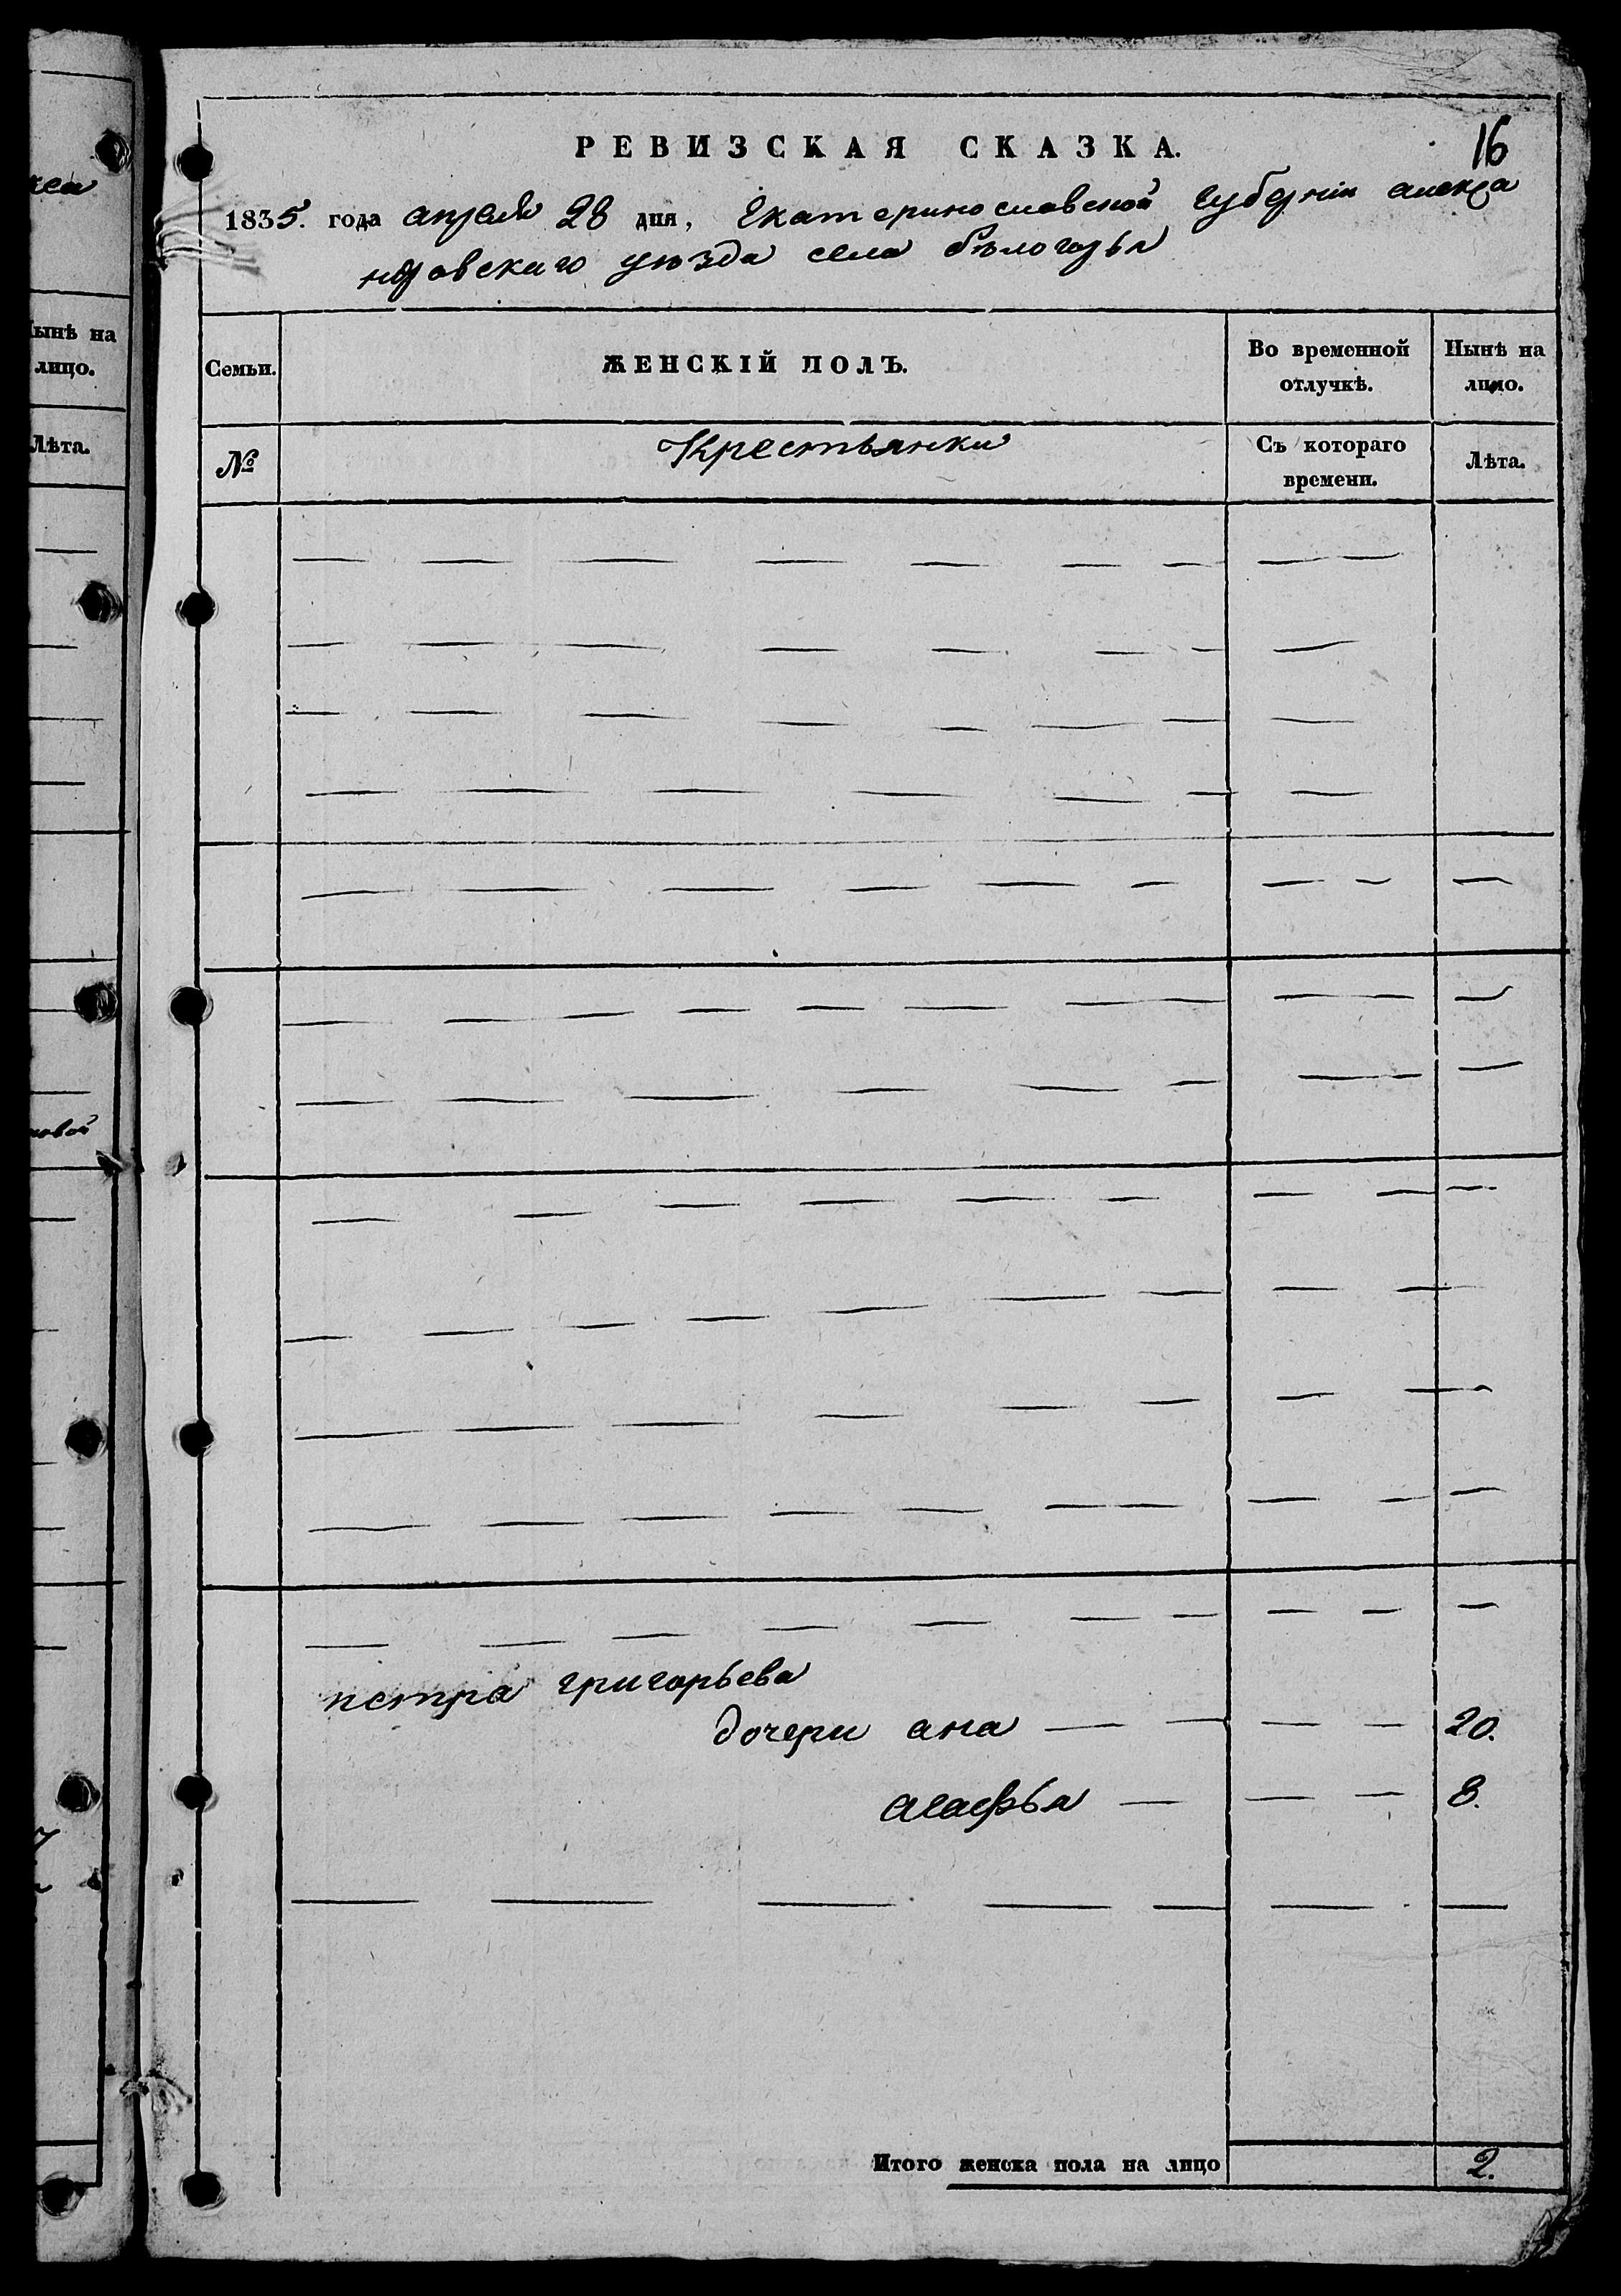 РЕВИЗСКАЯ СКАЗКА.
16
1835. года апреля 28 дня, Екатеринославской губернiи алекса
ндровскаго уѣзда села бѣлогорья
Семьи.
ЖЕНСКІЙ ПОЛЪ.
Во временной
отлучкѣ.
Нынѣ на
лицо.
№
Крестьянки
Съ котораго
времени.
Лѣта.
петра григорьева
дочери ана — — — — 20.
агафья — — — 8.
Итого женска пола на лицо 2.
ынѣ на
лицо.
Лѣта.